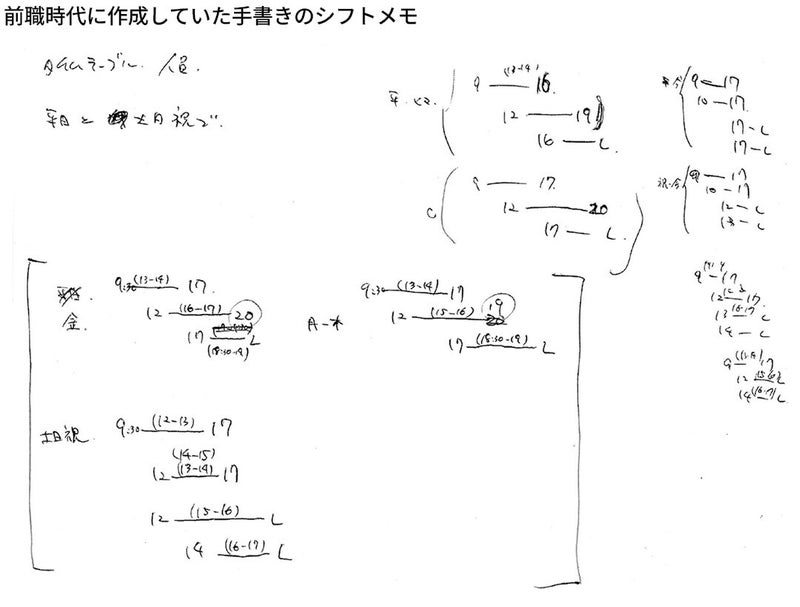 前職時代に作成していた手書きのシフトメモ
タイムテーブル. 人員.
平日と 土日祝で.
9 (13-14) 16.
12 19
16 L.
C
9 17.
12 20
17 L.
9 17
10 17.
17-L
17-L
祝・金
17
10-17
12-L
13-L
金.
9:30 (13-14) 17.
12 (16-17) 20
17 L
(18:30-19)
月-木
9:30 (13-14) 17
12 (15-16) 19
17 (18:30-19) L
土日祝.
9:30 (12-13) 17
(14-15)
12 (13-14) 17
12 (15-16) L
14 (16-17) L
9-17
12 17.
13 (16-17) L
14 - L
9 17
12 (15-16) L
14 (16-17) L